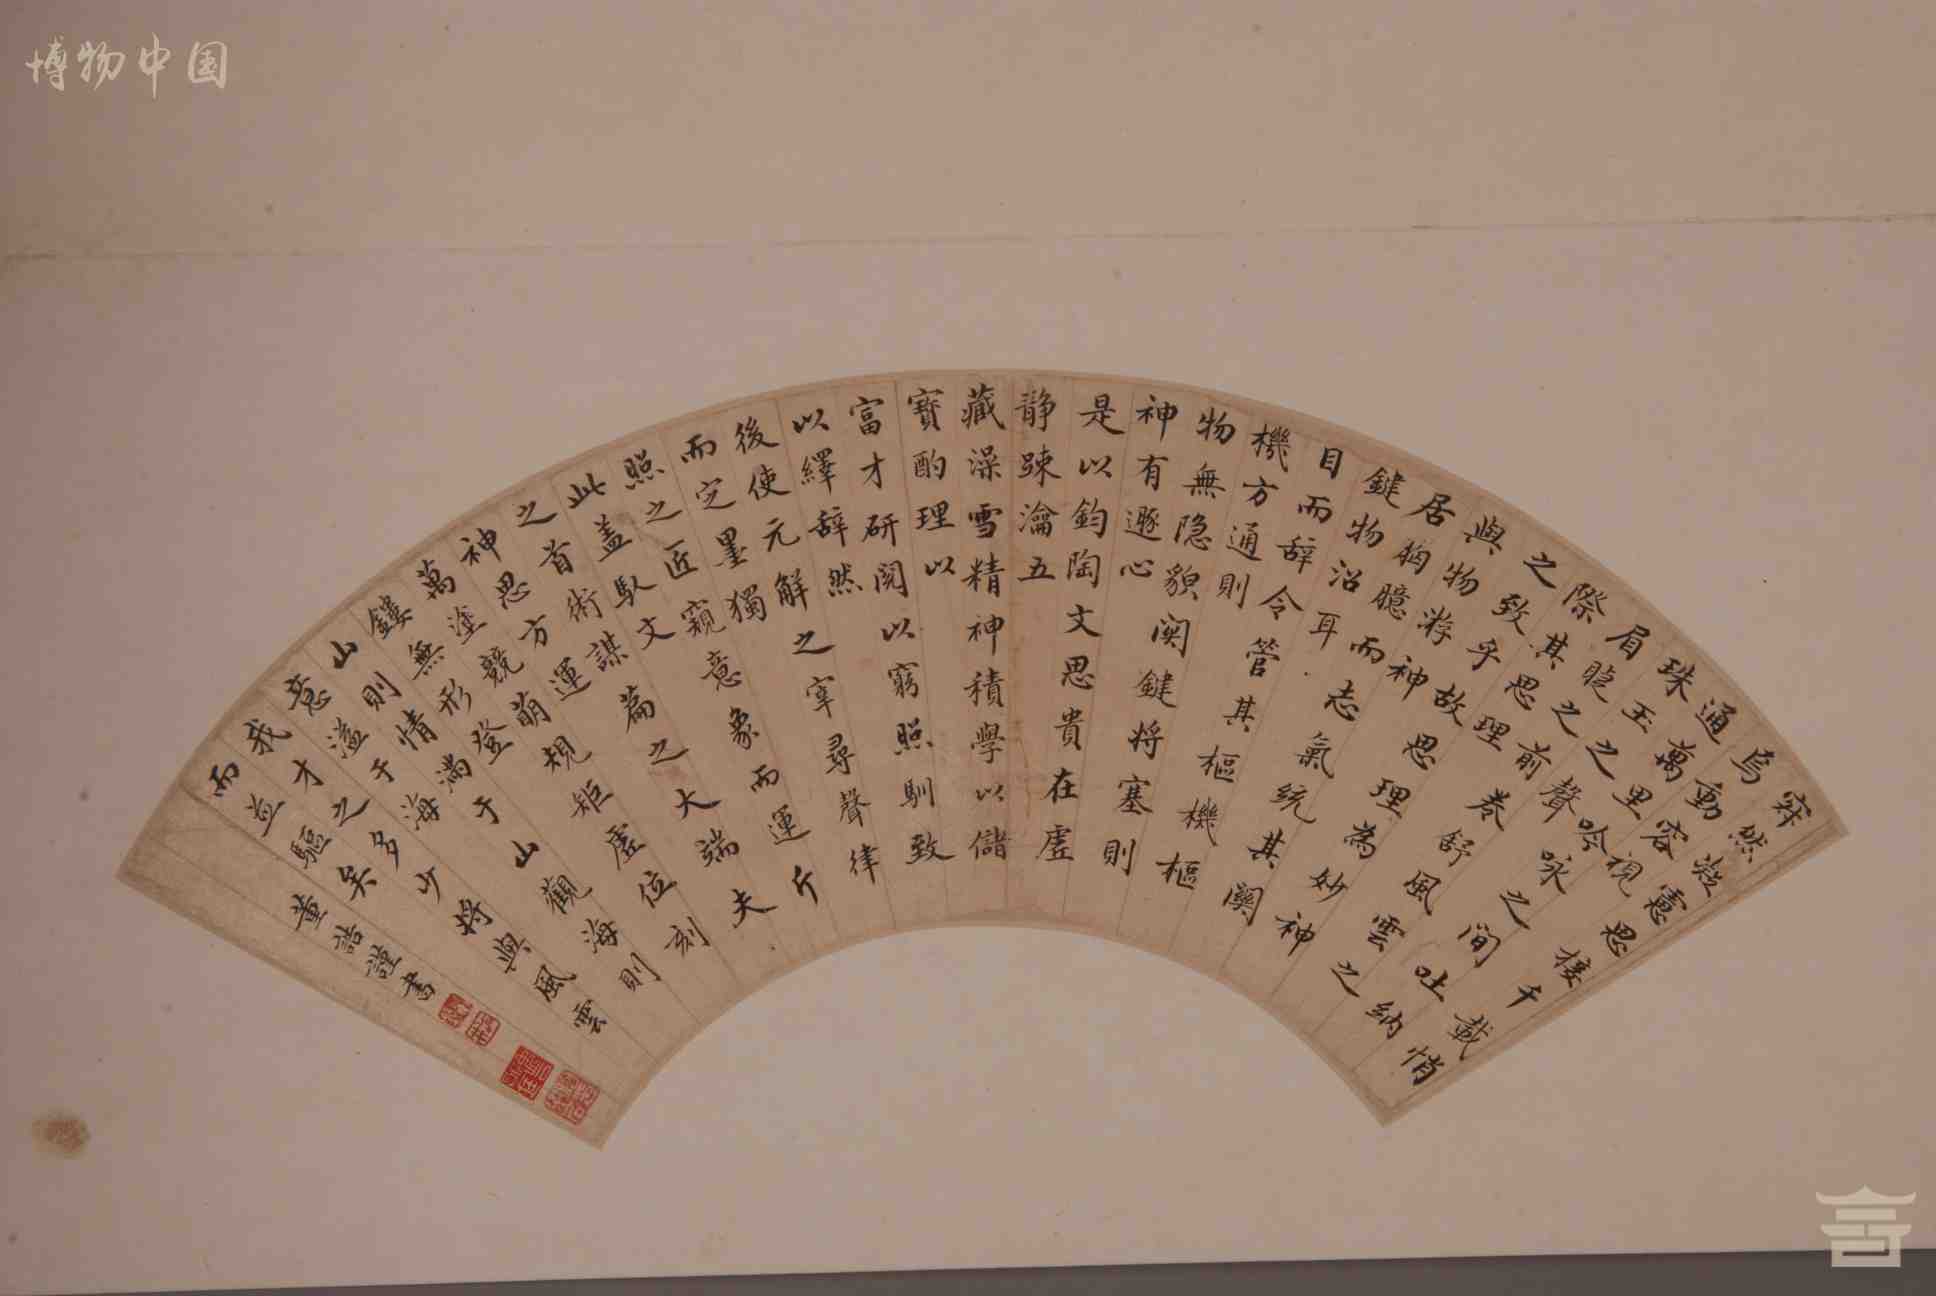 博物中国
寂然凝慮思接千載悄
焉動容視
通萬里吟咏之間吐納
珠玉之聲
眉睫之前卷舒風雲之
際其思理
之致乎故思理為妙神
與物游神
居胸臆而志氣統其關
鍵物沿耳
目而辞令管其樞機樞
機方通則
物無隐貌関鍵将塞則
神有遯心
是以鈞陶文思貴在虛
静踈瀹五
藏澡雪精神積學以儲
寶酌理以
富才研閱以窮照馴致
以繹辞然
後使元解之宰尋聲律
而定墨獨
照之匠窺意象而運斤
此盖馭文
之首術謀篇之大端夫
神思方運
萬塗競萌規矩虛位刻
鏤無形登
山則情滿于山觀海則
意溢于海
我才之多少將與風雲
而並驅矣
董誥謹書